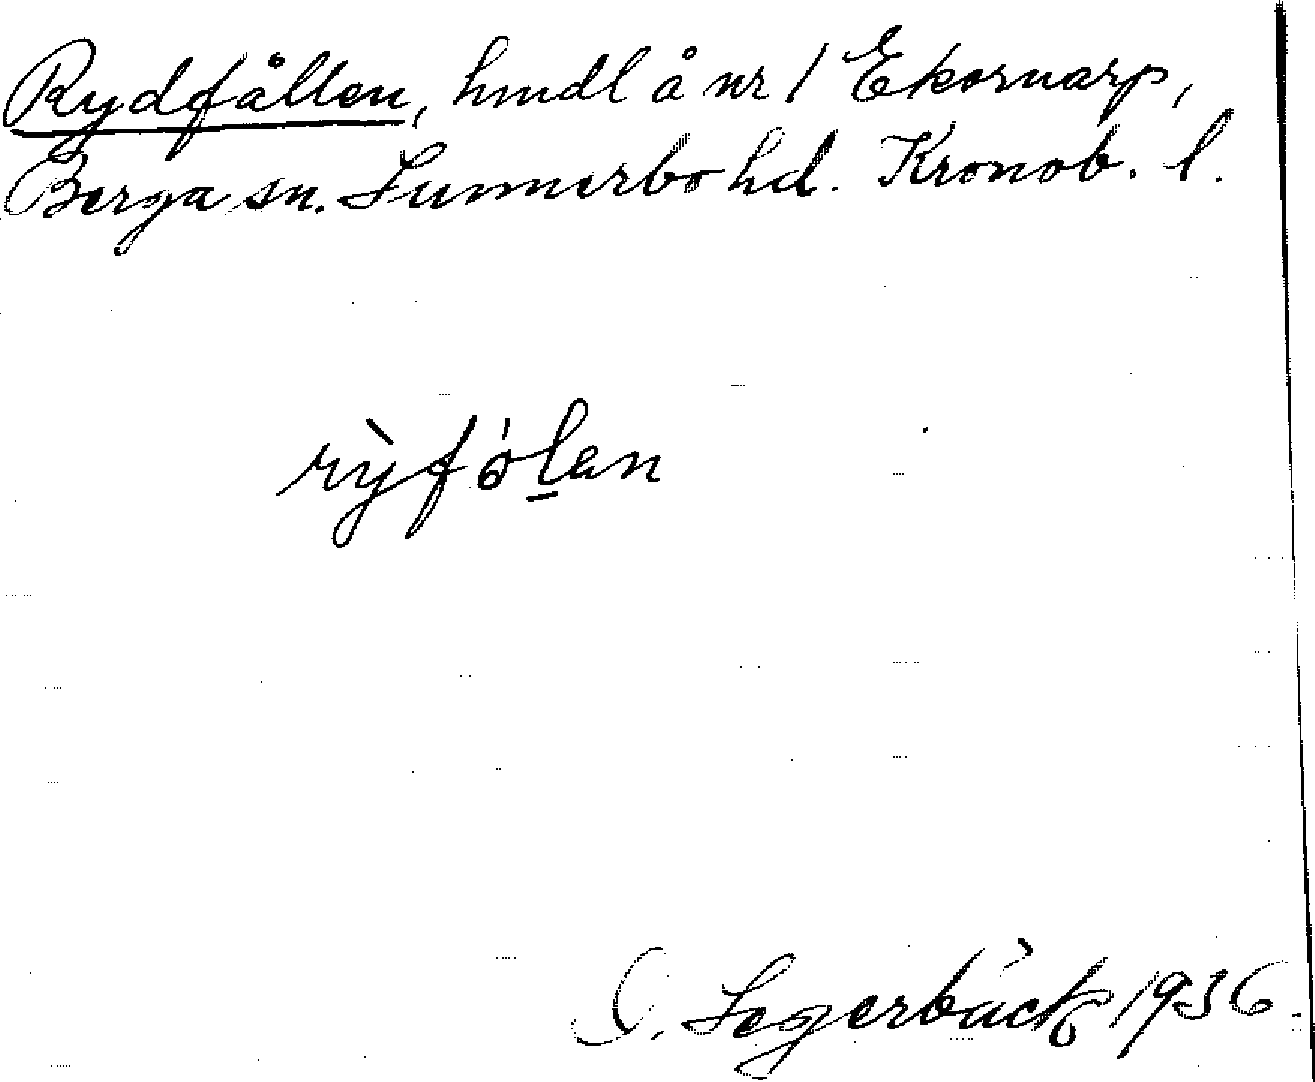 Rydfållen, hmdl å nr 1 Ekornarp,
Berga sn. Sunnerbo hd. Kronob. l.
rỳfólan
Segerbäck 1936.